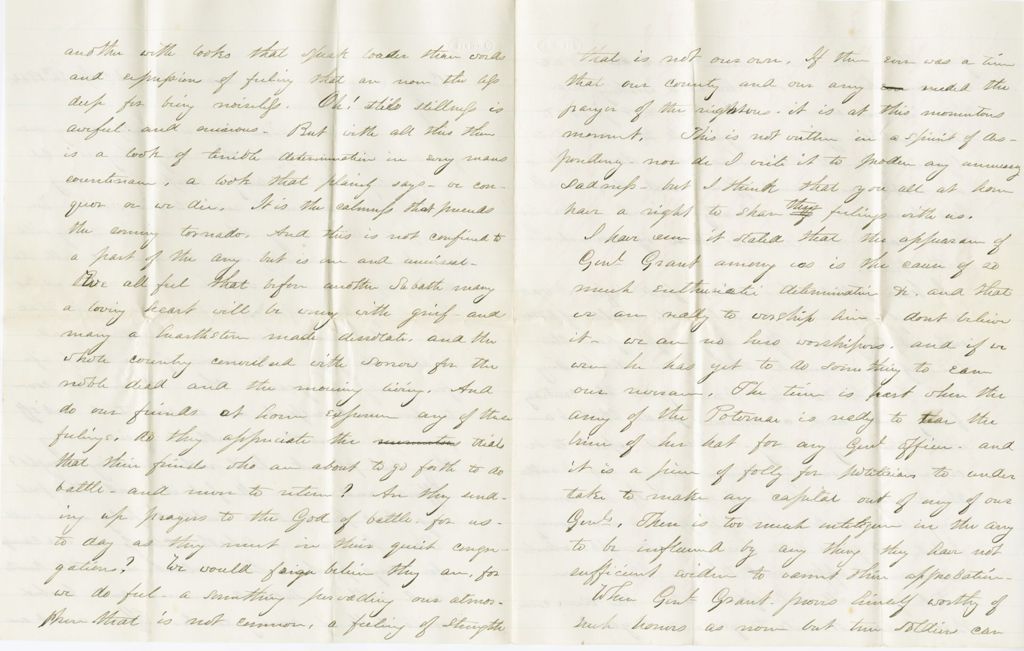 another with looks that speak louder than words
and expression of feeling that are none the less
deep for being noiseless. Oh! this stillness is
awful and ominous. But with all this there
is a look of terrible determination in every mans
countenance, a look that plainly says - we con-
quer or we die. It is the calmness that precedes
the coming tornado. And this is not confined to
a part of the army but is one and universal.
We all feel that before another Sabbath many
a loving heart will be wrung with grief and
many a hearthstone made desolate, and the
whole country convulsed with sorrow for the
noble dead and the mourning living. And
do our friends at home experience any of these
feelings. do they appreciate the trials
that their friends who are about to go forth to do
battle - and never to return? Are they send-
ing up prayers to the God of battle for us -
to day as they meet in their quiet congre-
gations? We would feign believe they are, for
we do feel - a something pervading our atmos-
phere that is not common, a feeling of strength
that is not our own. If there ever was a time
that our country and our army needed the
prayers of the righteous - it is at this momentous
moment. This is not written in a spirit of des-
pondency - nor do I write it to produce any unnecessary
sadness - but I think that you all at home
have a right to share these feelings with us.
I have seen it stated that the appearance of
Genl Grant among us is the cause of so
much enthusiastic determination &c. and that
we are ready to worship him - dont believe
it - we are no hero worshipers, and if we
were he has yet to do something to earn
our reverence. The time is past when the
army of the Potomac is ready to tear the
linen of her hat for any Genl officer - and
it is a piece of folly for politicians to under
take to make any capital out of any of our
Genls. There is too much intelligence in the army
to be influenced by any thing they have not
sufficient evidence to warrant their approbation.
When Genl Grant proves himself worthy of
such honors as none but true Soldiers can